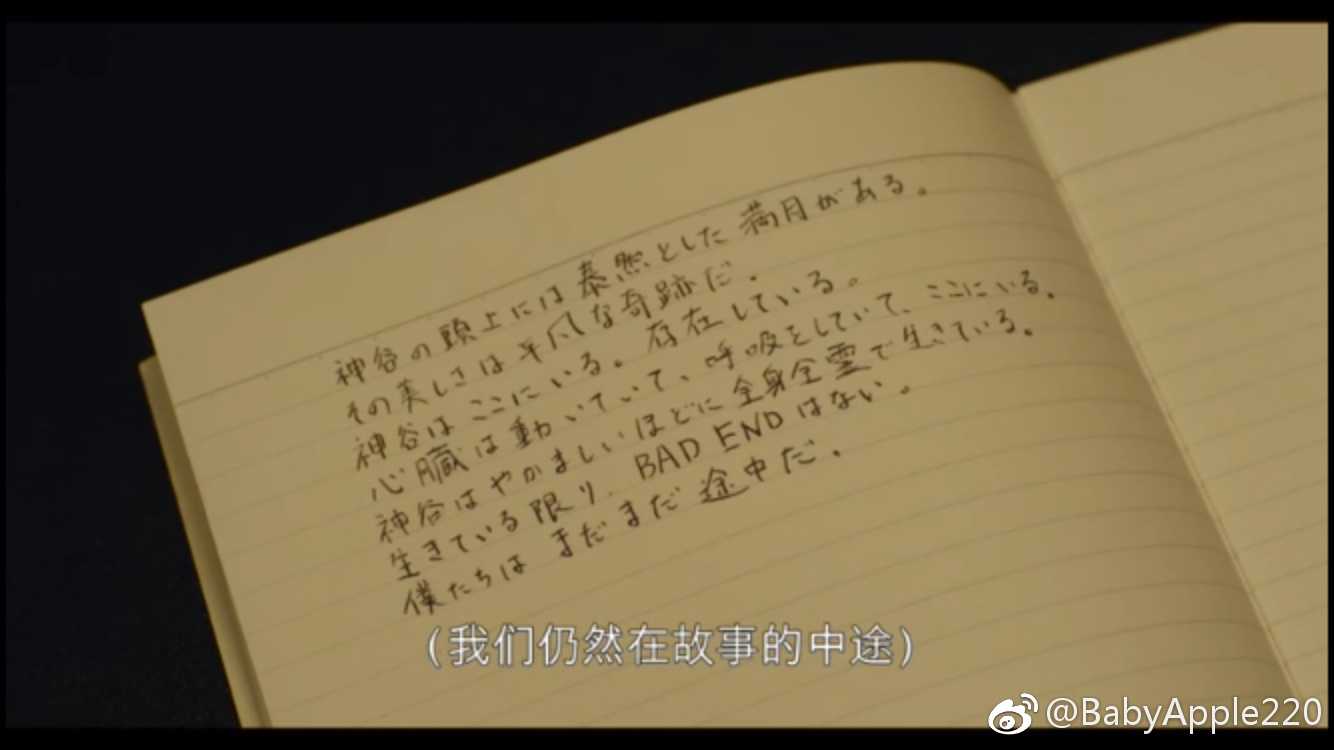 神谷の頭上には泰然とした満月がある。
その美しさは平凡な奇跡だ。
神谷はここにいる。存在している。
心臓は動いていて、呼吸をしていて、ここにいる。
神谷はやかましいほどに全身全霊で生きている。
生きている限り、BAD ENDはない。
僕たちはまだまだ途中だ。
（我们仍然在故事的中途）
@BabyApple220